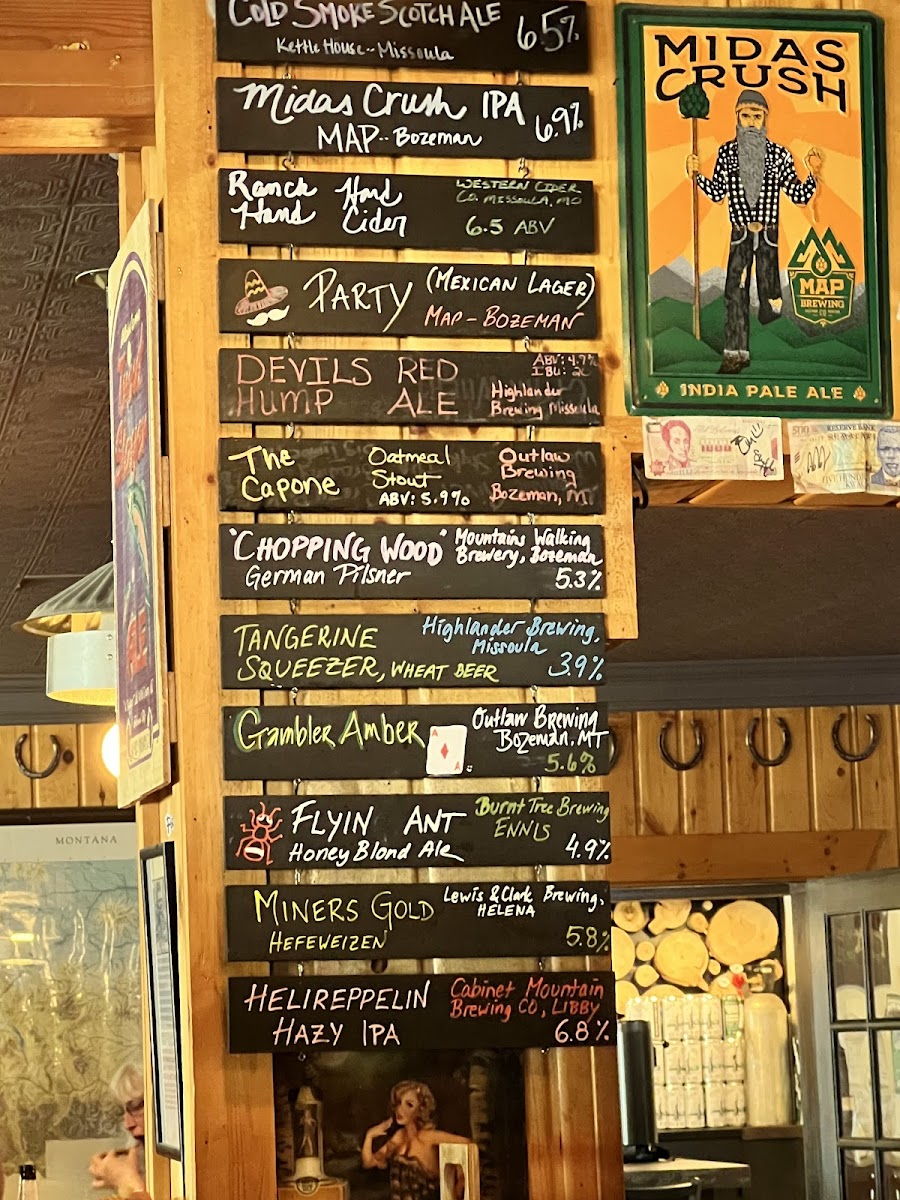 COLD SMOKE SCOTCH ALE 6.5%
KettleHouse--Missoula
Midas Crush IPA 6.9%
MAP--Bozeman
Ranch Hand
Hard Cider
WESTERN CIDER
CO. MISSOULA, MO
6.5 ABV
PARTY (MEXICAN LAGER)
MAP-BOZEMAN
DEVILS HUMP
RED ALE
ABV: 4.7%
IBU:
Highlander
Brewing Missoula
The Capone
Oatmeal
Stout
ABV: 5.9%
Outlaw
Brewing
Bozeman, MT
"CHOPPING WOOD"
German Pilsner
Mountains Walking
Brewery, Bozeman
5.3%
TANGERINE
SQUEEZER, WHEAT BEER
Highlander Brewing,
Missoula
3.9%
Gambler Amber
A
A
Outlaw Brewing
Bozeman, MT
5.6%
FLYIN ANT
Honey Blond Ale
Burnt Tree Brewing
ENNIS
4.9%
MINERS GOLD
HEFEWEIZEN
Lewis & Clark Brewing,
HELENA
5.8%
HELIREPPELIN
HAZY IPA
Cabinet Mountain
Brewing CO, LIBBY
6.8%
MIDAS
CRUSH
MAP
BREWING
INDIA PALE ALE
1000
500 RESERVE BANK
MONTANA